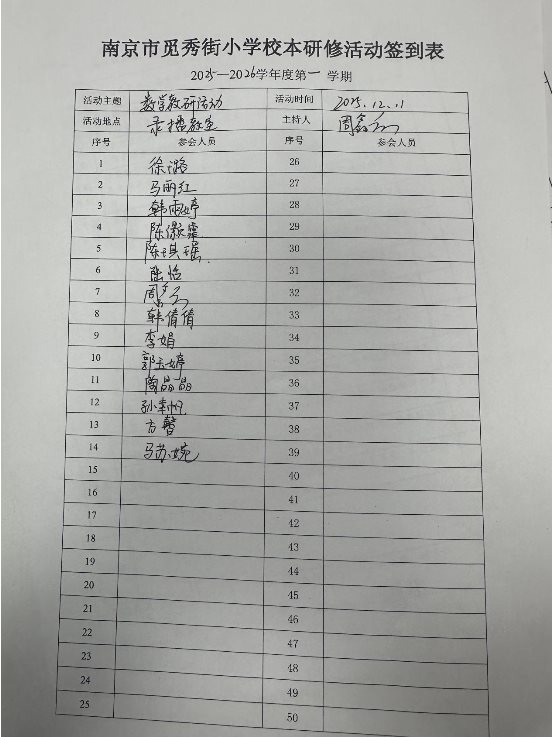 南京市觅秀街小学校本研修活动签到表
2025—2026学年度第一 学期
活动主题 数学教研活动 活动时间 2025.12.11
活动地点 录播教室 主持人 周
序号 参会人员 序号 参会人员
1 徐璐 26
2 马丽红 27
3 韩雨婷 28
4 陈傲霜 29
5 陈琪瑶 30
6 陆怡 31
7 周 32
8 韩倩倩 33
9 李娟 34
10 郭玉婷 35
11 陶晶晶 36
12 孙 37
13 方馨 38
14 马苏婉 39
15 40
16 41
17 42
18 43
19 44
20 45
21 46
22 47
23 48
24 49
25 50